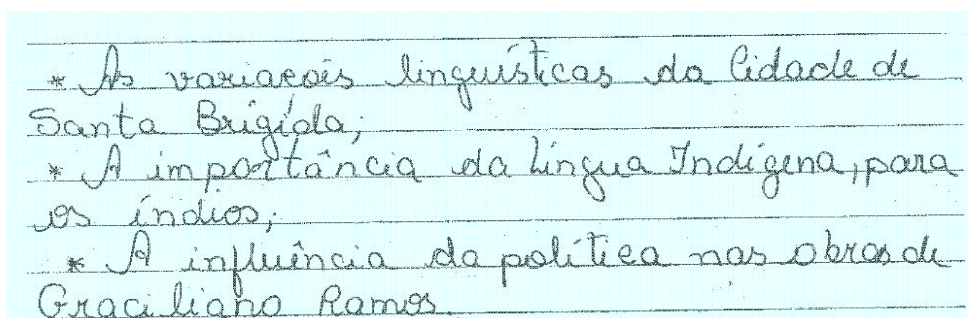 * As variaçois linguísticas da Cidade de
Santa Brígida;
* A importância da Língua Indígena, para
os índios;
* A influência da política nas obras de
Graciliano Ramos.